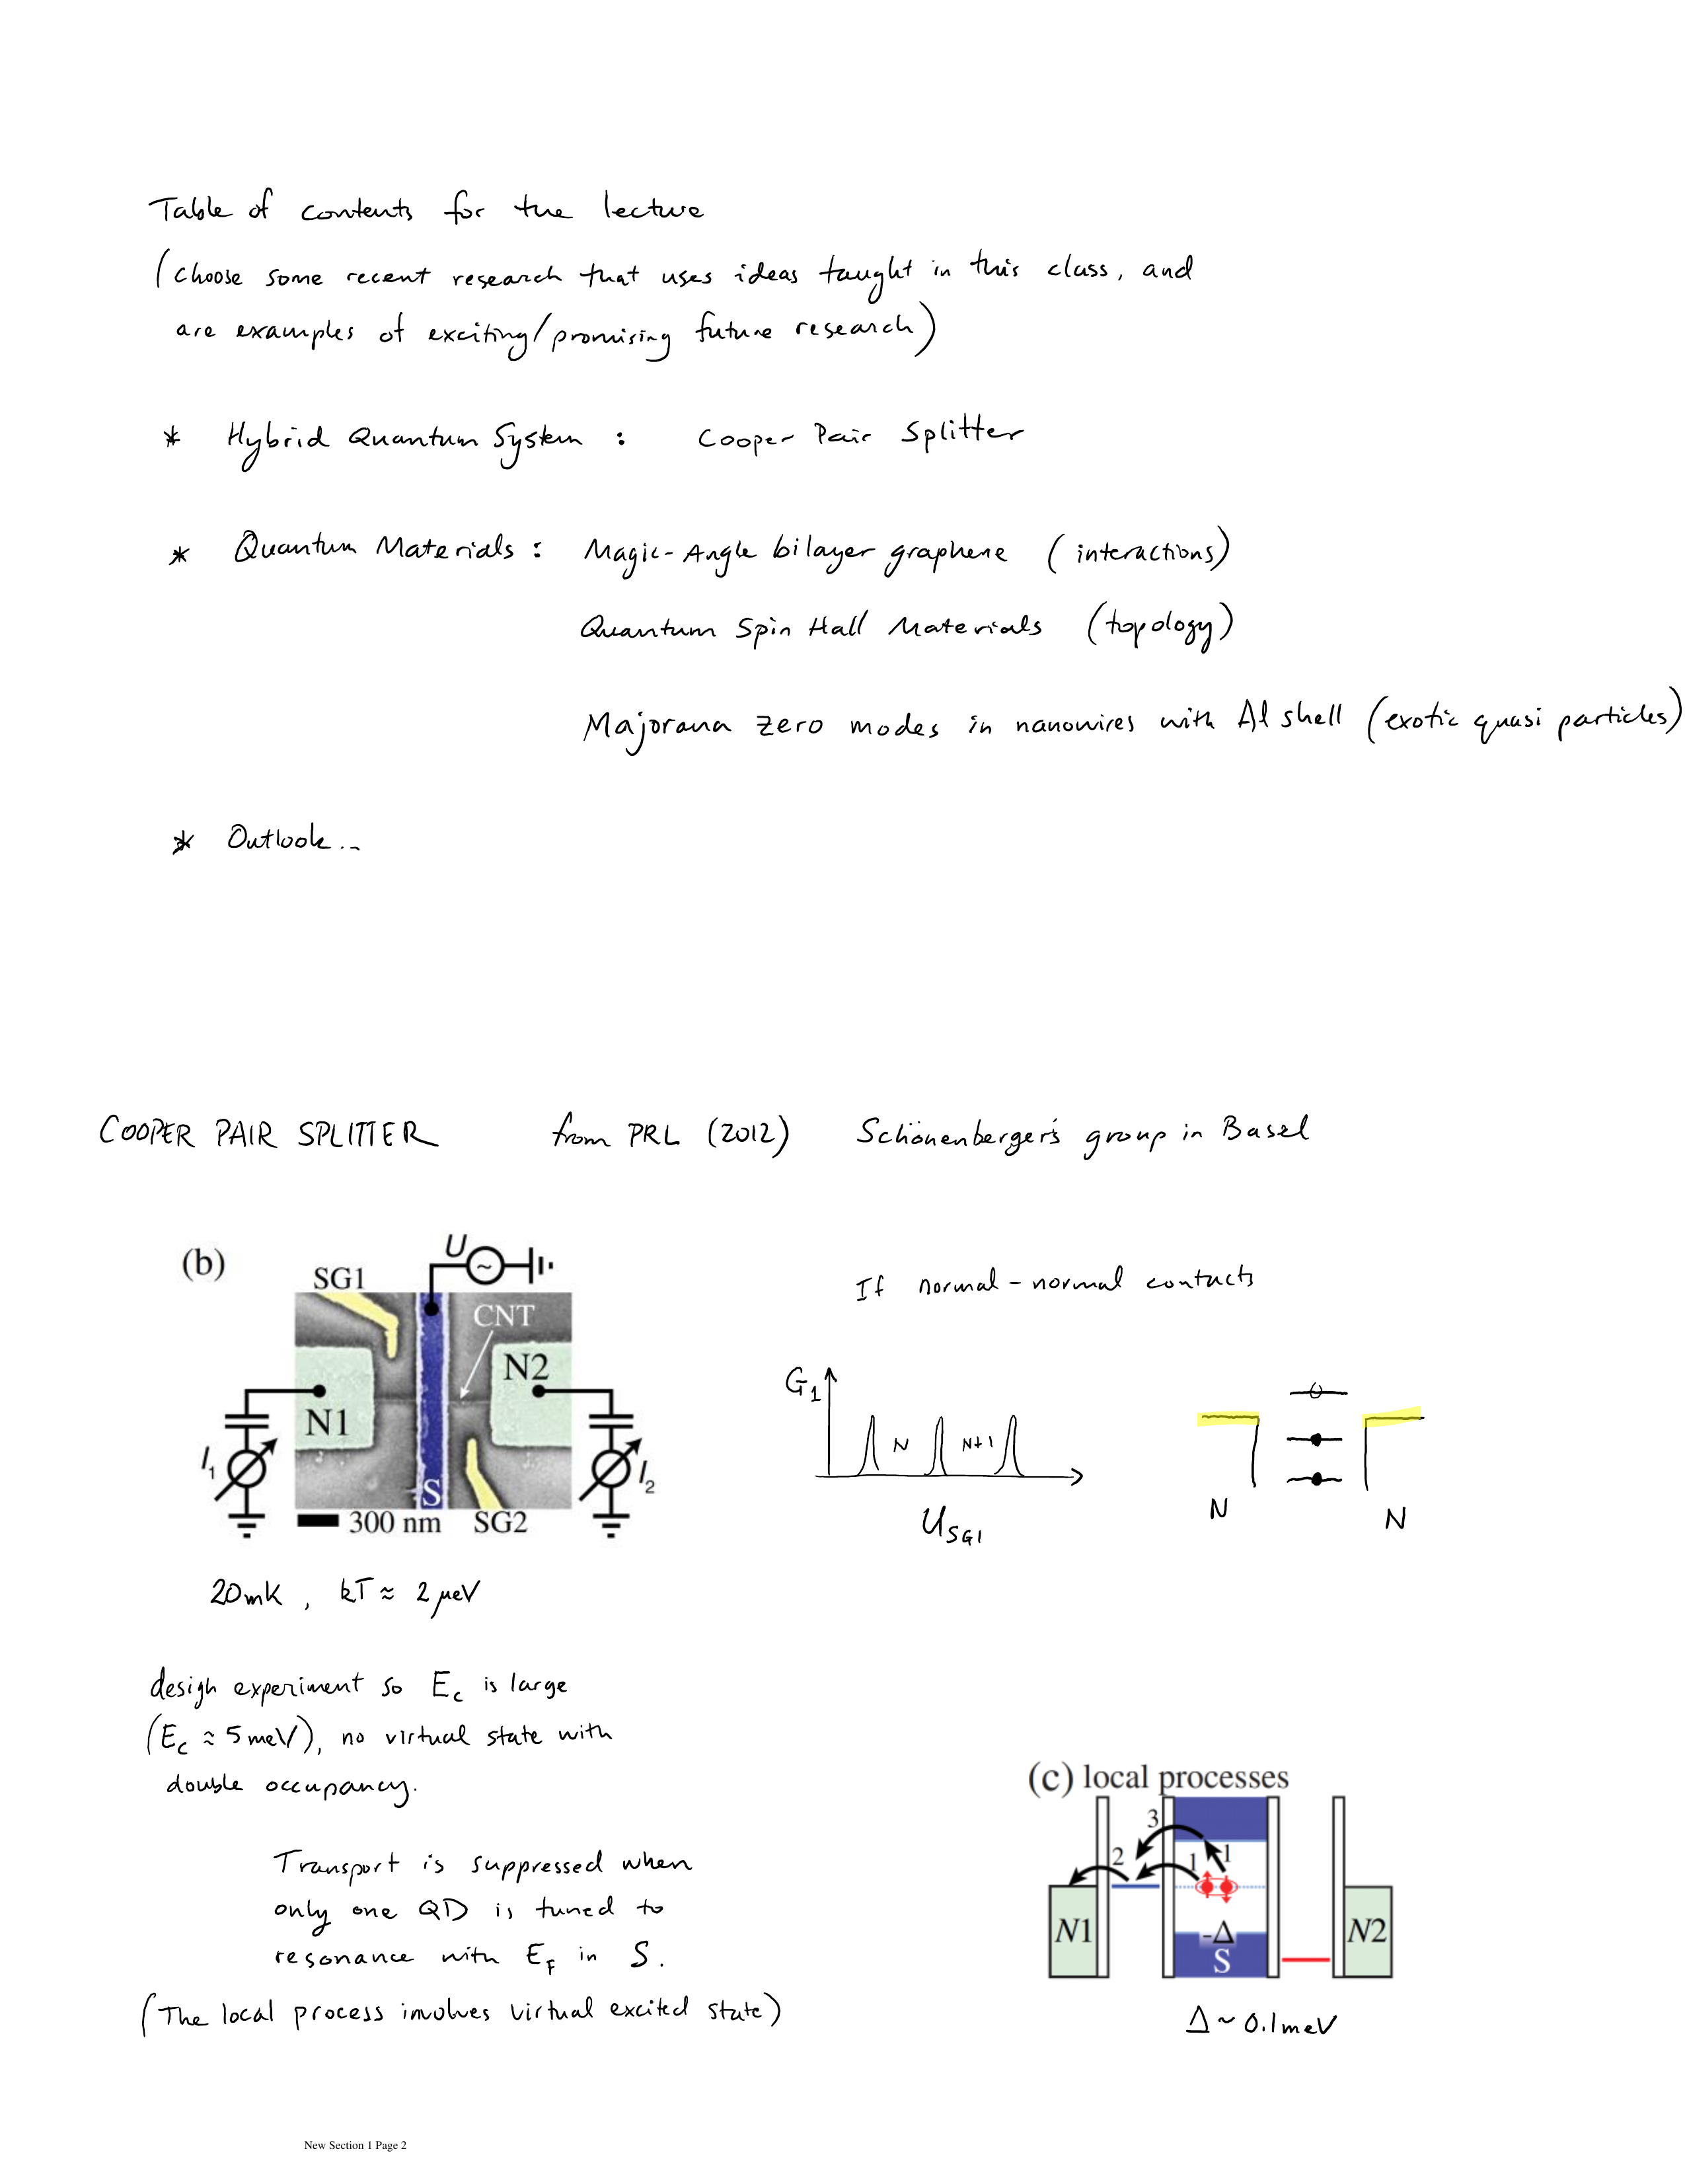 Table of contents for the lecture
(choose some recent research that uses ideas taught in this class, and
are examples of exciting/promising future research)
* Hybrid Quantum System : Cooper Pair Splitter
* Quantum Materials : Magic-Angle bilayer graphene (interactions)
Quantum Spin Hall Materials (topology)
Majorana zero modes in nanowires with Al shell (exotic quasi particles)
* Outlook...
COOPER PAIR SPLITTER from PRL (2012) Schönenberger's group in Basel
(b)
U
SG1
CNT
N2
N1
I1
I2
S
300 nm SG2
If normal-normal contacts
G1
N N+1
USG1
N N
20mK , kT ≈ 2 µeV
design experiment so Ec is large
(Ec ≈ 5 meV), no virtual state with
double occupancy.
Transport is suppressed when
only one QD is tuned to
resonance with EF in S.
(The local process involves virtual excited state)
(c) local processes
3
2 1 1
N1 -Δ N2
S
Δ ~ 0.1meV
New Section 1 Page 2